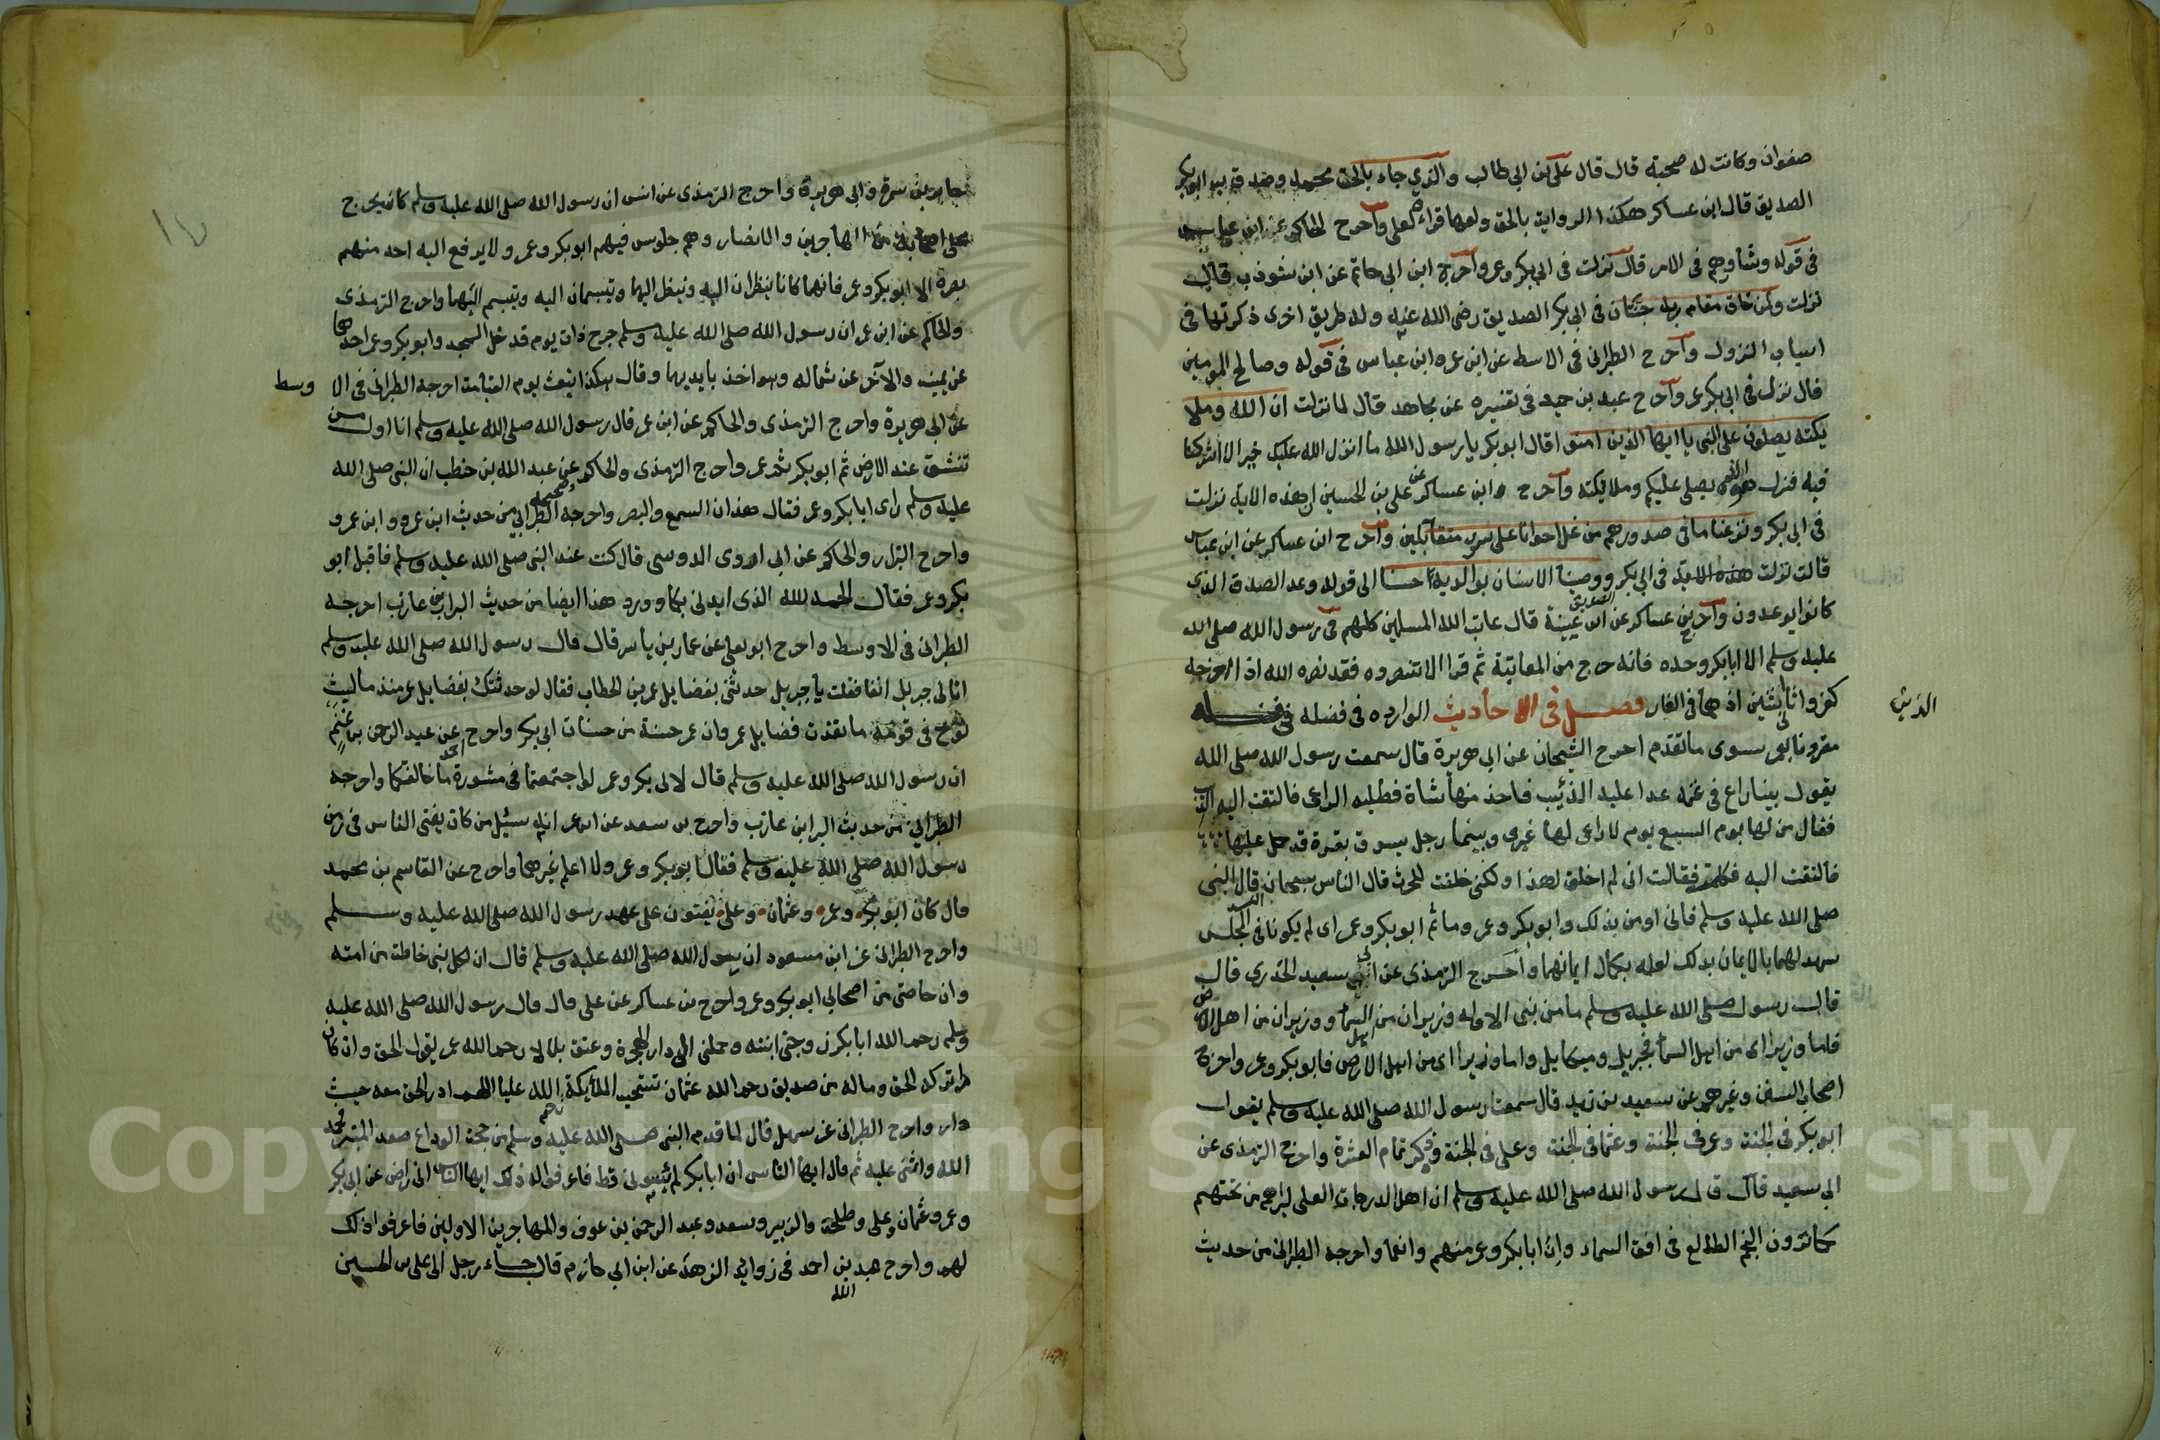 صفوان وكانت له صحبة قال قال علي بن ابي طالب والذي جاء بالحق محمد وصدق به ابو بكر
الصديق قال ابن عساكر هكذا الرواية بالحق ولعلها قراءة لعلي واخرج الحاكم عن ابن عباس
في قوله وشاورهم في الامر قال نزلت في ابي بكر وعمر واخرج ابن ابي حاتم عن ابن شوذب قال
نزلت ولمن خاف مقام ربه جنتان في ابي بكر الصديق رضي الله عنه وله طريق اخرى ذكرتها في
اسباب النزول واخرج الطبراني في الاوسط عن ابن عمر وابن عباس في قوله وصالح المومنين
قال نزل في ابي بكر وعمر واخرج عبد بن حميد في تفسيره عن مجاهد قال لما نزلت ان الله وملا
يكته يصلون على النبي يا ايها الذين امنوا قال ابو بكر يا رسول الله ما انزل الله عليك خيرا الا اشركنا
فيه فنزل هو الذي يصلي عليكم وملايكته واخرج ابن عساكر عن علي بن الحسين ان هذه الاية نزلت
في ابي بكر ونزعنا ما في صدورهم من غل اخوانا على سرر متقابلين واخرج ابن عساكر عن ابن عباس
قالت نزلت هذه الاية في ابي بكر ووصينا الانسان بوالديه احسانا الى قوله وعد الصدق الذي
كانوا يوعدون واخرج بن عساكر عن ابن عيينة قال عاتب الله المسلمين كلهم في رسول الله صلى الله
عليه وسلم الا ابا بكر وحده فانه خرج من المعاتبة ثم قرا الا تنصروه فقد نصره الله اذ اخرجه
الذين
كفروا ثاني اثنين اذ هما في الغار فصل في الاحاديث الواردة في فضله
مقرونا بعمر سوى ما تقدم اخرج الشيخان عن ابي هريرة قال سمعت رسول الله صلى الله
يقول بينا راع في غنمه عدا عليه الذئب فاخذ منها شاة فطلبه الراعي فالتفت اليه الذئب
فقال من لها يوم السبع يوم لا راعي لها غيري وبينما رجل يسوق بقرة قد حمل عليها
فالتفت اليه فكلمته فقالت اني لم اخلق لهذا ولكني خلقت للحرث قال الناس سبحان الله قال النبي
صلى الله عليه وسلم فاني اومن بذلك وابو بكر وعمر وما ثم ابو بكر وعمر اي لم يكونا في المجلس
شهد لهما بالايمان بذلك لعلمه بكمال ايمانهما واخرج الترمذي عن ابي سعيد الخدري قال
قال رسول صلى الله عليه وسلم ما من نبي الا وله وزيران من اهل السما ووزيران من اهل الارض
فاما وزيراي من اهل السما فجبريل وميكايل واما وزيراي من اهل الارض فابو بكر وعمر واخرج
اصحاب السنن وغيرهم عن سعيد بن زيد قال سمعت رسول الله صلى الله عليه وسلم يقول
ابو بكر في الجنة وعمر في الجنة وعثمان في الجنة وعلي في الجنة وذكر تمام العشرة واخرج الترمذي عن
ابي سعيد قال قال رسول الله صلى الله عليه وسلم ان اهل الدرجات العلى ليراهم من تحتهم
كما ترون النجم الطالع في افق السماء وان ابا بكر وعمر منهم وانعما واخرجه الطبراني من حديث
جابر بن سمرة وابي هريرة واخرج الترمذي عن انس ان رسول الله صلى الله عليه وسلم كان يخرج
على اصحابه من المهاجرين والانصار وهم جلوس فيهم ابو بكر وعمر ولا يرفع اليه احد منهم
بصره الا ابو بكر وعمر فانهما كانا ينظران اليه وينظر اليهما ويتبسمان اليه ويتبسم اليهما واخرج الترمذي
والحاكم عن ابن عمر ان رسول الله صلى الله عليه وسلم خرج ذات يوم فدخل المسجد وابو بكر وعمر احدهما
عن يمينه والاخر عن شماله وهو اخذ بايديهما وقال هكذا نبعث يوم القيامة اخرجه الطبراني في الا وسط
عن ابي هريرة واخرج الترمذي والحاكم عن ابن عمر قال رسول الله صلى الله عليه وسلم انا اول من
تنشق عنه الارض ثم ابو بكر ثم عمر واخرج الترمذي والحاكم وصححه عن عبد الله بن حنطب ان النبي صلى الله
عليه وسلم راى ابا بكر وعمر فقال هذان السمع والبصر واخرجه الطبراني من حديث ابن عمر وابن عمرو
واخرج البزار والحاكم عن ابي اروى الدوسي قال كنت عند النبي صلى الله عليه وسلم فاقبل ابو
بكر وعمر فقال الحمد لله الذي ايدني بكما وورد هذا ايضا من حديث البراء بن عازب اخرجه
الطبراني في الاوسط واخرج ابو يعلى عن عمار بن ياسر قال قال رسول الله صلى الله عليه وسلم
اتاني جبريل انفا فقلت يا جبريل حدثني بفضايل عمر بن الخطاب فقال لو حدثتك بفضايل عمر منذ ما لبث
نوح في قومه ما نفذت فضايل عمر وان عمر حسنة من حسنات ابي بكر واخرج احمد عن عبد الرحمن بن غنم
ان رسول الله صلى الله عليه وسلم قال لابي بكر وعمر لو اجتمعتما في مشورة ما خالفتكما واخرجه
الطبراني من حديث البرا ابن عازب واخرج بن سعد عن ابن عمر انه سئيل من كان يفتي الناس في زمن
رسول الله صلى الله عليه وسلم فقال ابو بكر وعمر ولا اعلم غيرهما واخرج عن القاسم بن محمد
قال كان ابو بكر وعمر وعثمان وعلي يفتون على عهد رسول الله صلى الله عليه وسلم
واخرج الطبراني عن ابن مسعود ان رسول الله صلى الله عليه وسلم قال ان لكل نبي خاصة من امته
وان خاصتي من اصحابي ابو بكر وعمر واخرج بن عساكر عن علي قال قال رسول الله صلى الله عليه
وسلم رحم الله ابا بكر زوجني ابنته وحملني الى دار الهجرة وعتق بلالا رحم الله عمر يقول الحق وان كان
مرا تركه الحق وماله من صديق رحم الله عثمان تستحيه الملايكة رحم الله عليا اللهم ادر الحق معه حيث
دار واخرج الطبراني عن سهل قال لما قدم النبي صلى الله عليه وسلم من حجة الوداع صعد المنبر فحمد
الله واثنى عليه ثم قال ايها الناس ان ابا بكر لم يسوني قط فاعرفوا له ذلك ايها الناس اني راض عن ابي بكر
وعمر وعثمان وعلي وطلحة والزبير وسعد وعبد الرحمن بن عوف والمهاجرين الاولين فاعرفوا ذلك
لهم واخرج عبد الله بن احمد في زوايد الزهد عن ابن ابي حازم قال جاء رجل الى علي بن الحسين